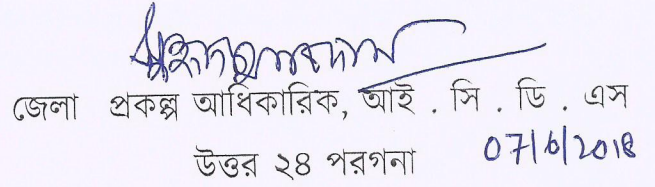 জেলা প্রকল্প আধিকারিক, আই . সি . ডি . এস
উত্তর ২৪ পরগনা 07/6/2018